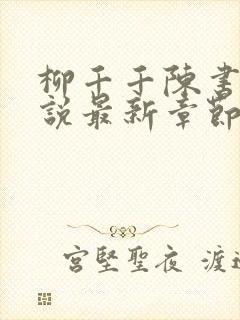 柳千千陈书
說最新章節
宮堅聖夜 渡